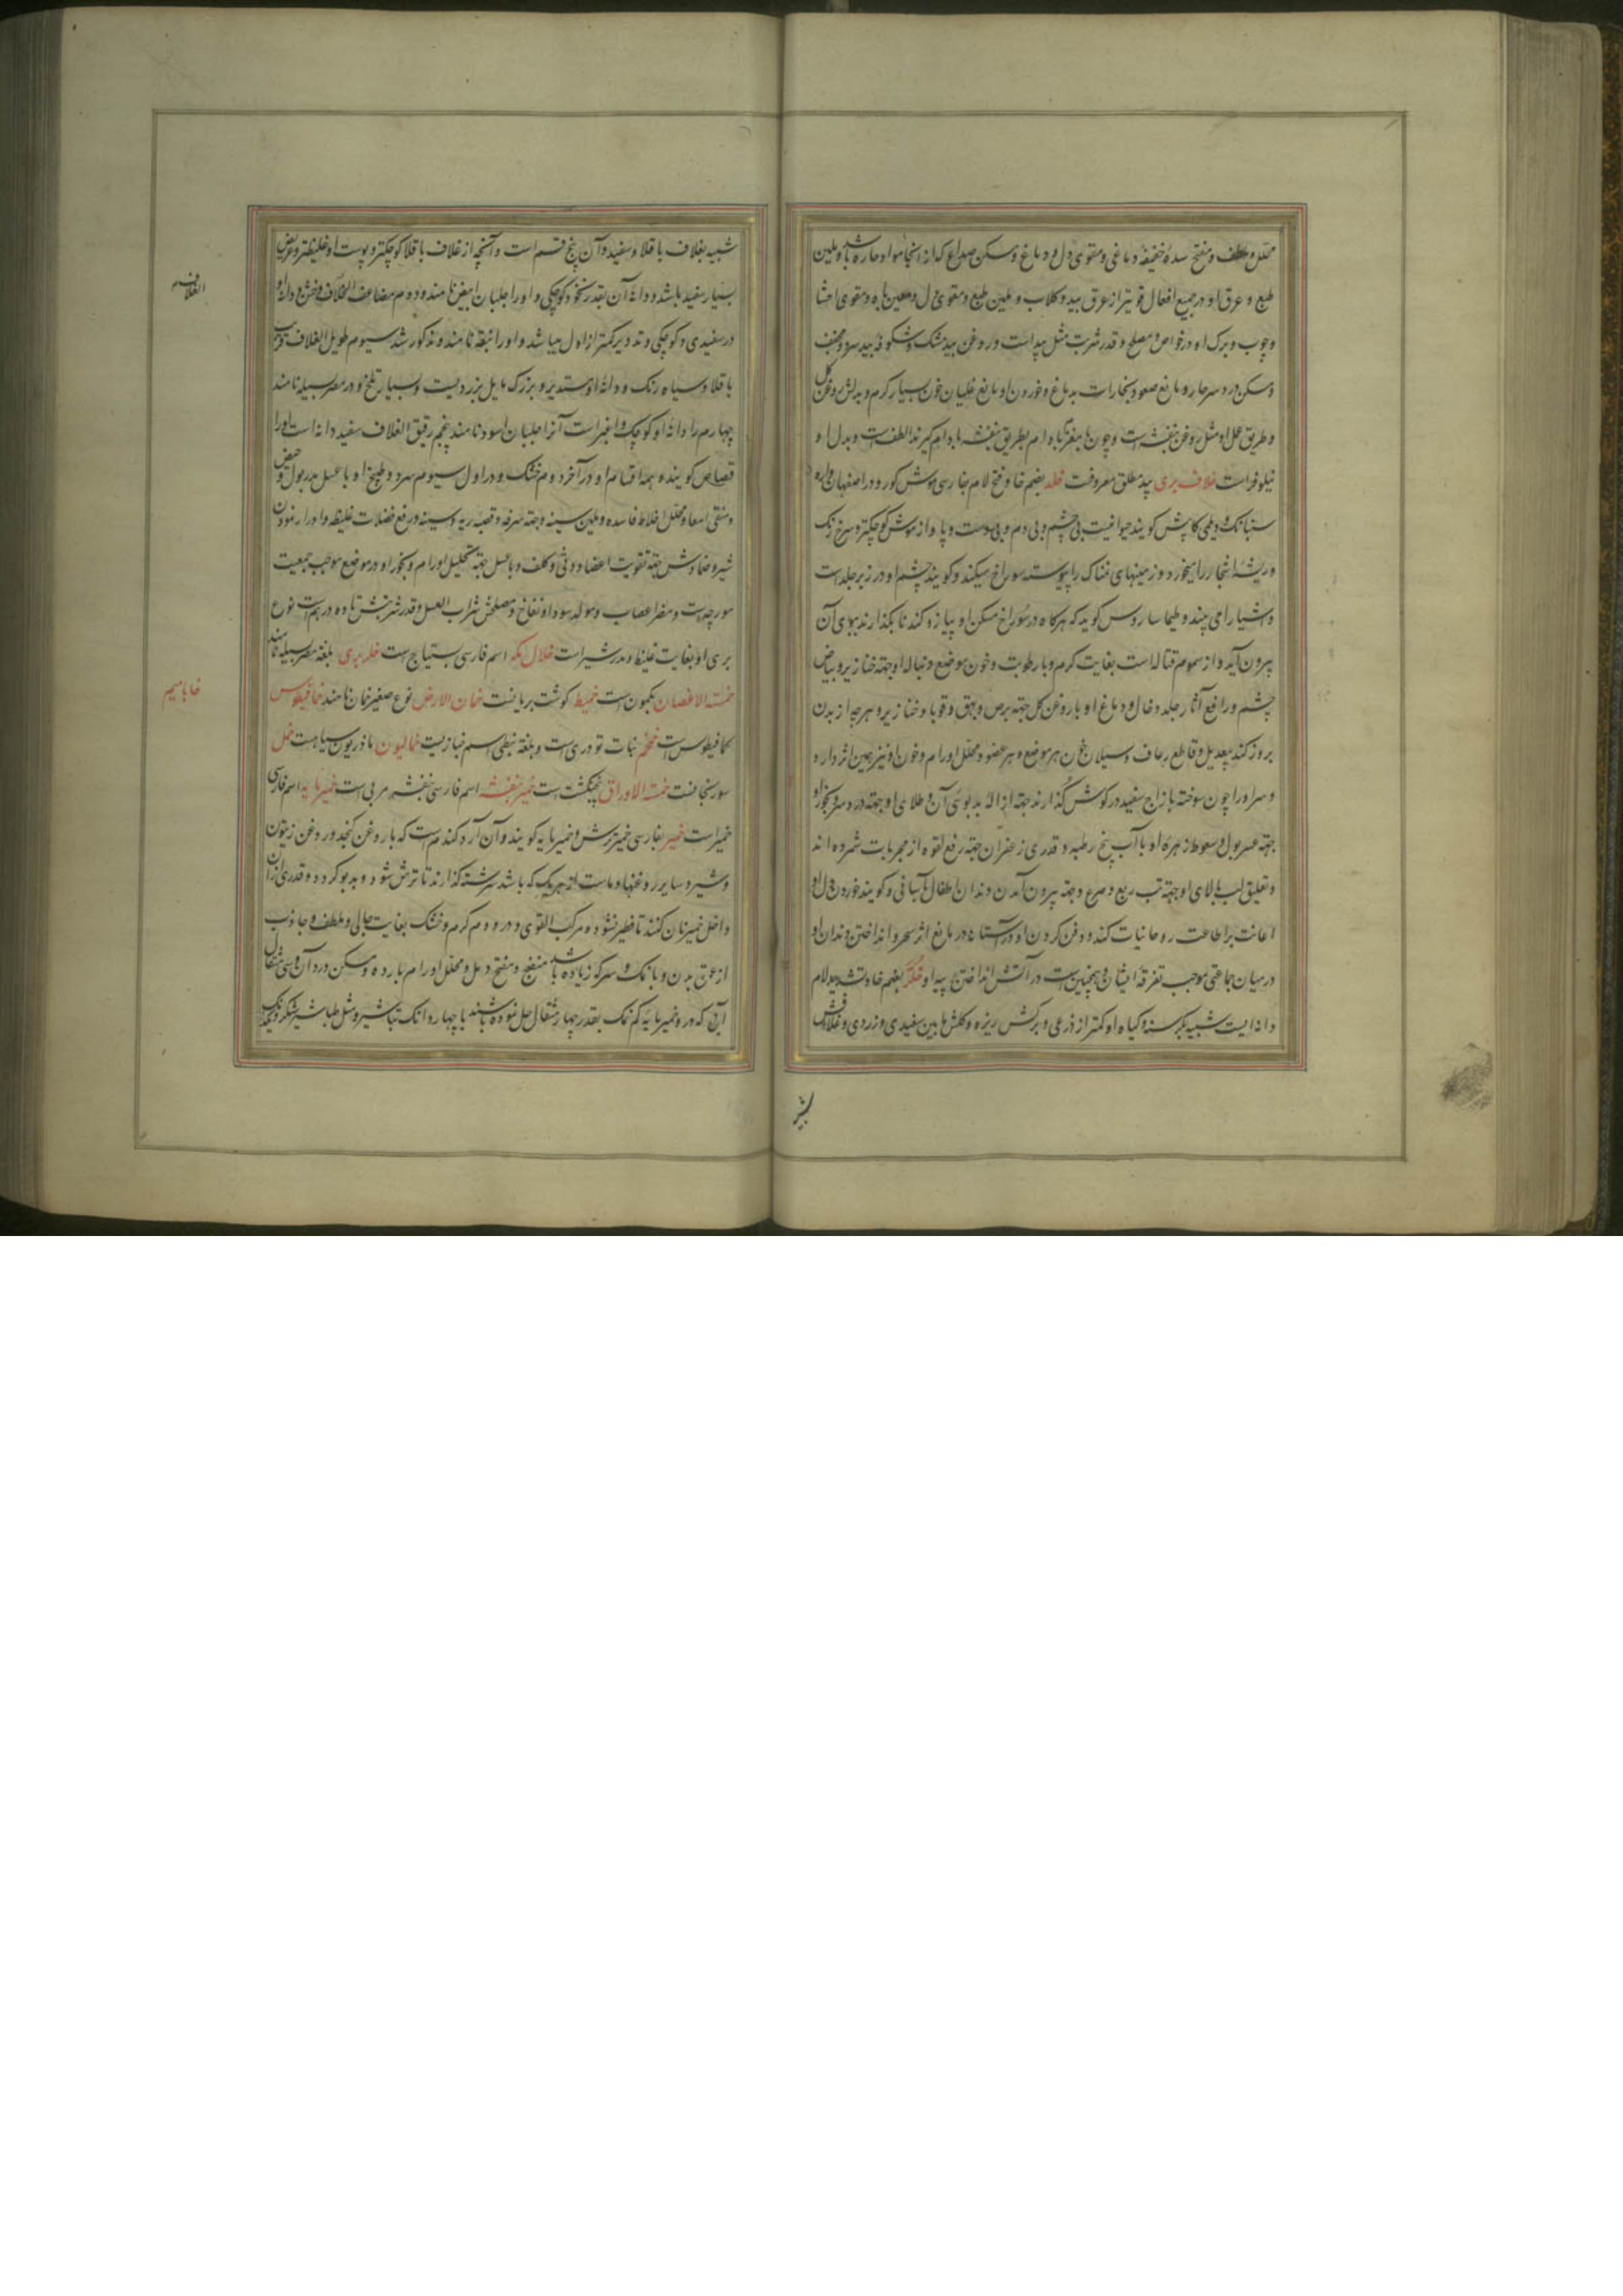 محلل و ملطف و مفتح سدهٔ خفیفهٔ دماغی و مقوی دل و دماغ و مسکن صداع که از ابخرهٔ حاره باشد و ملین
طبع و عرق او در جمیع افعال قویتر از عرق بید و کلاب و ملین طبع و مقوی دل و معین باه و مقوی احشا
و چوب و برک او در خواص و مصلح و قدر شربت مثل بید است و روغن بید مشک و شکوفه بید سرد و مجفف
و مسکن درد سر حار و مانع صعود بخارات بدماغ و خوردن او مانع غلیان خون بسیار کرم و بدلش روغن کل
و طریق عمل او مثل روغن بنفشه است و چون با مغز بادام بطریق بنفشه بادام کیرند الطف است و بدل او
نیلوفر است خلاف بری بید مطلق معروفست خلد بضم خا و فتح لام بفارسی موش کور و در اصفهان
و دیلمی کاپش کویند حیوانیست بی چشم و بی دم و بی دست و پا و از موش کوچکتر و سرخ رنک
و ریشهٔ اشجار را میخورد و زمینهای نمناک را پیوسته سوراخ میکند و کویند چشم او در زیر جلد است
و اشیا را می بیند و طیماساروس کوید که هرکاه در سوراخ مسکن او پیاز و کندنا بکذارند ببوی آن
بیرون آید و از سموم قتاله است بغایت کرم و با رطوبت و خون موضع دنباله او جهة خنازیر و بیاض
چشم و رافع آثار جلد و خال و دماغ او با روغن کل جهة برص و بهق و قوبا و خنازیر و هر چه از بدن
بروز کند بیعدیل و قاطع رعاف و سیلان خون هر موضع و هر عضو و محلل اورام و خون او نیز همین اثر دارد
و سر او را چون سوخته با زاج سفید در کوش کذارند جهة ازالهٔ بدبوئی آن و طلای او جهة درد سر و بخور او
جهة عسر بول و سعوط زهرهٔ او با آب بیخ رطبه و قدری زعفران جهة رفع لقوه از مجربات شمرده اند
و تعلیق لب بالای او جهة تب ربع و صرع و جهة بیرون آمدن دندان اطفال بآسانی و کویند خوردن دل او
اعانت بر اطاعت روحانیات کند و دفن کردن او در آستانه در مانع اثر سحر و انداختن دندان او
در میان جماعتی موجب تفرقه ایشان و همچنین است در آتش انداختن پیه او خلر بضم خا و تشدید لام
دانه ایست شبیه بکرسنه و کیاه او کمتر از ذرعی و برکش ریزه و کلش مابین سفیدی و زردی و غلافش
شبیه
شبیه بغلاف باقلا و سفید و آن پنج قسم است و آنچه از غلاف باقلا کوچکتر و پوست او غلیظتر و عریض
بسیار سفید باشد و دانهٔ آن بقدر نخود کوچکی و او را جلبان ابیض نامند و دوم مضاعف الغلاف و دانهٔ او
در سفیدی و کوچکی و تدویر کمتر از اول میباشد و او را بنقه نامند و مذکور شد سیوم طویل الغلاف قریب
باقلا و سیاه رنک و دانهٔ او مستدیر و بزرک مایل بزردیست و بسیار تلخ و در مصر بسیله نامند
چهارم را دانهٔ او کوچک و اغبر است آنرا جلبان اسود نامند پنجم رقیق الغلاف سفید دانه است او را
قصاص کویند و همه اقسام او در آخر دوم خشک و در اول سیوم سرد و طبیخ او با عسل مدر بول و حیض
و منقی امعا و محلل اخلاط فاسده و ملین سینه و جهة سرفه و قصبه ریه و سینه در رفع فضلات غلیظه و ادرار نمودن
شیر و ضمادش جهة تقویت اعضا و وثی و کلف و با عسل جهة تحلیل اورام و بخور او در موضع موجب جمعیت
مورچه است و مضر اعصاب و مولد سودا و نفاخ و مصلحش شراب العسل و قدر شربتش تا ده درهم است نوع
بری او بغایت غلیظ و مدر شیر است خلال مکه اسم فارسی بستیاج است خلر بری بلغة مصر بسیله نامند
خمسة الاغصان بکمون است خمیط کوشت بریانست خمان الارض نوع صغیر خمان نامند خمافیطوس
کمافیطوس است خمخم نبات تودری است و بلغة نبطی اسم خبازیست خمالیون ماذریون سیاهست خمل
سورنجانست خمسة الاوراق پنجنکشت است خمیر بنفشه اسم فارسی بنفشه مربی است خمیر مایه اسم فارسی
خمیر است خمیر بفارسی خمیر ترش و خمیر مایه کویند و آن آرد کندم است که با روغن کنجد و روغن زیتون
و شیر و سایر روغنها و ماست از هریک که باشد سرشته کذارند تا ترش شود و بدبو کردد و قدری از آن
داخل خمیر نان کنند تا فطیر نشود و مرکب القوی و در دوم کرم و خشک بغایت جالی و ملطف و جاذب
از عمق بدن و با نمک و سرکه زیاده باشد منضج و مفتح دمل و محلل اورام بارده و مسکن درد آن و سی مثقال
آبی که در و خمیر مایه کم نمک بقدر چهار مثقال حل نموده باشند با چهار دانک تباشیر و مثل طباشیر شکر و یکدانک
الغلاف
خا با میم